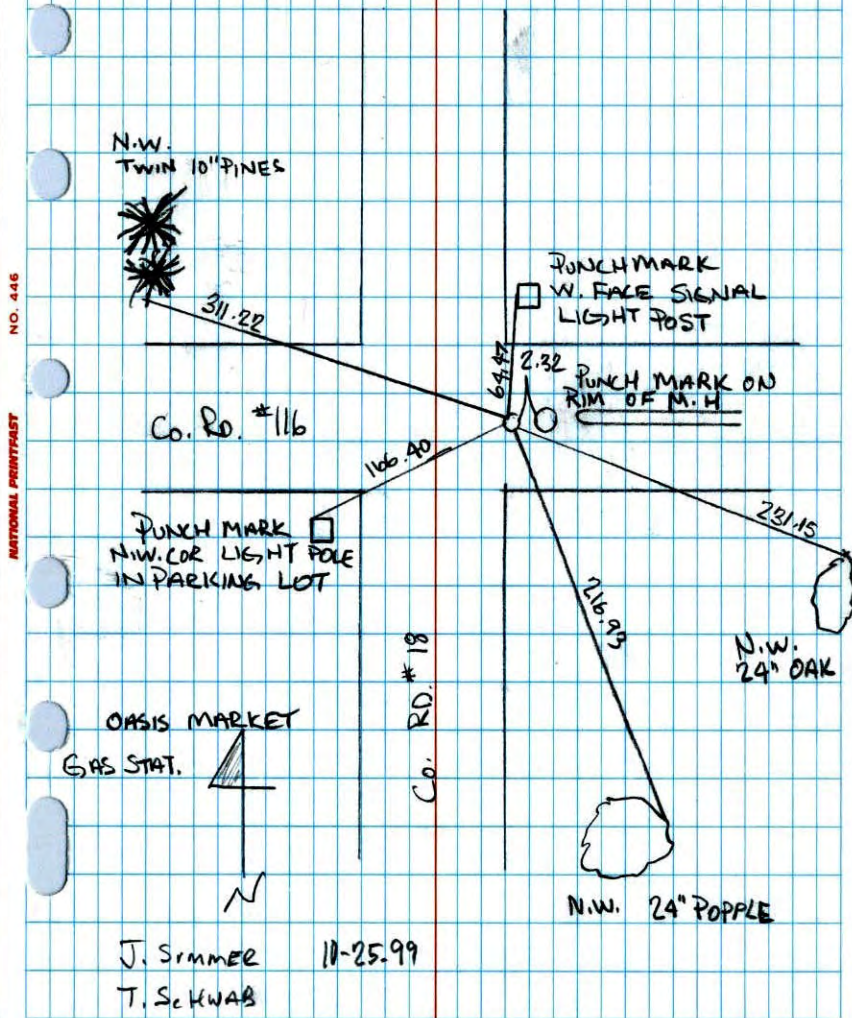 N.W.
TWIN 10" PINES
NO. 446
NATIONAL PRINTFAST
311.22
PUNCHMARK
W. FACE SIGNAL
LIGHT POST
64.47
2.32
PUNCH MARK ON
RIM OF M.H
Co. RD. #116
166.40
231.15
PUNCH MARK
N.W. COR LIGHT POLE
IN PARKING LOT
216.93
N.W.
24" OAK
Co. RD. #18
OASIS MARKET
GAS STAT.
N
N.W. 24" POPPLE
10-25-99
T. SCHWAB